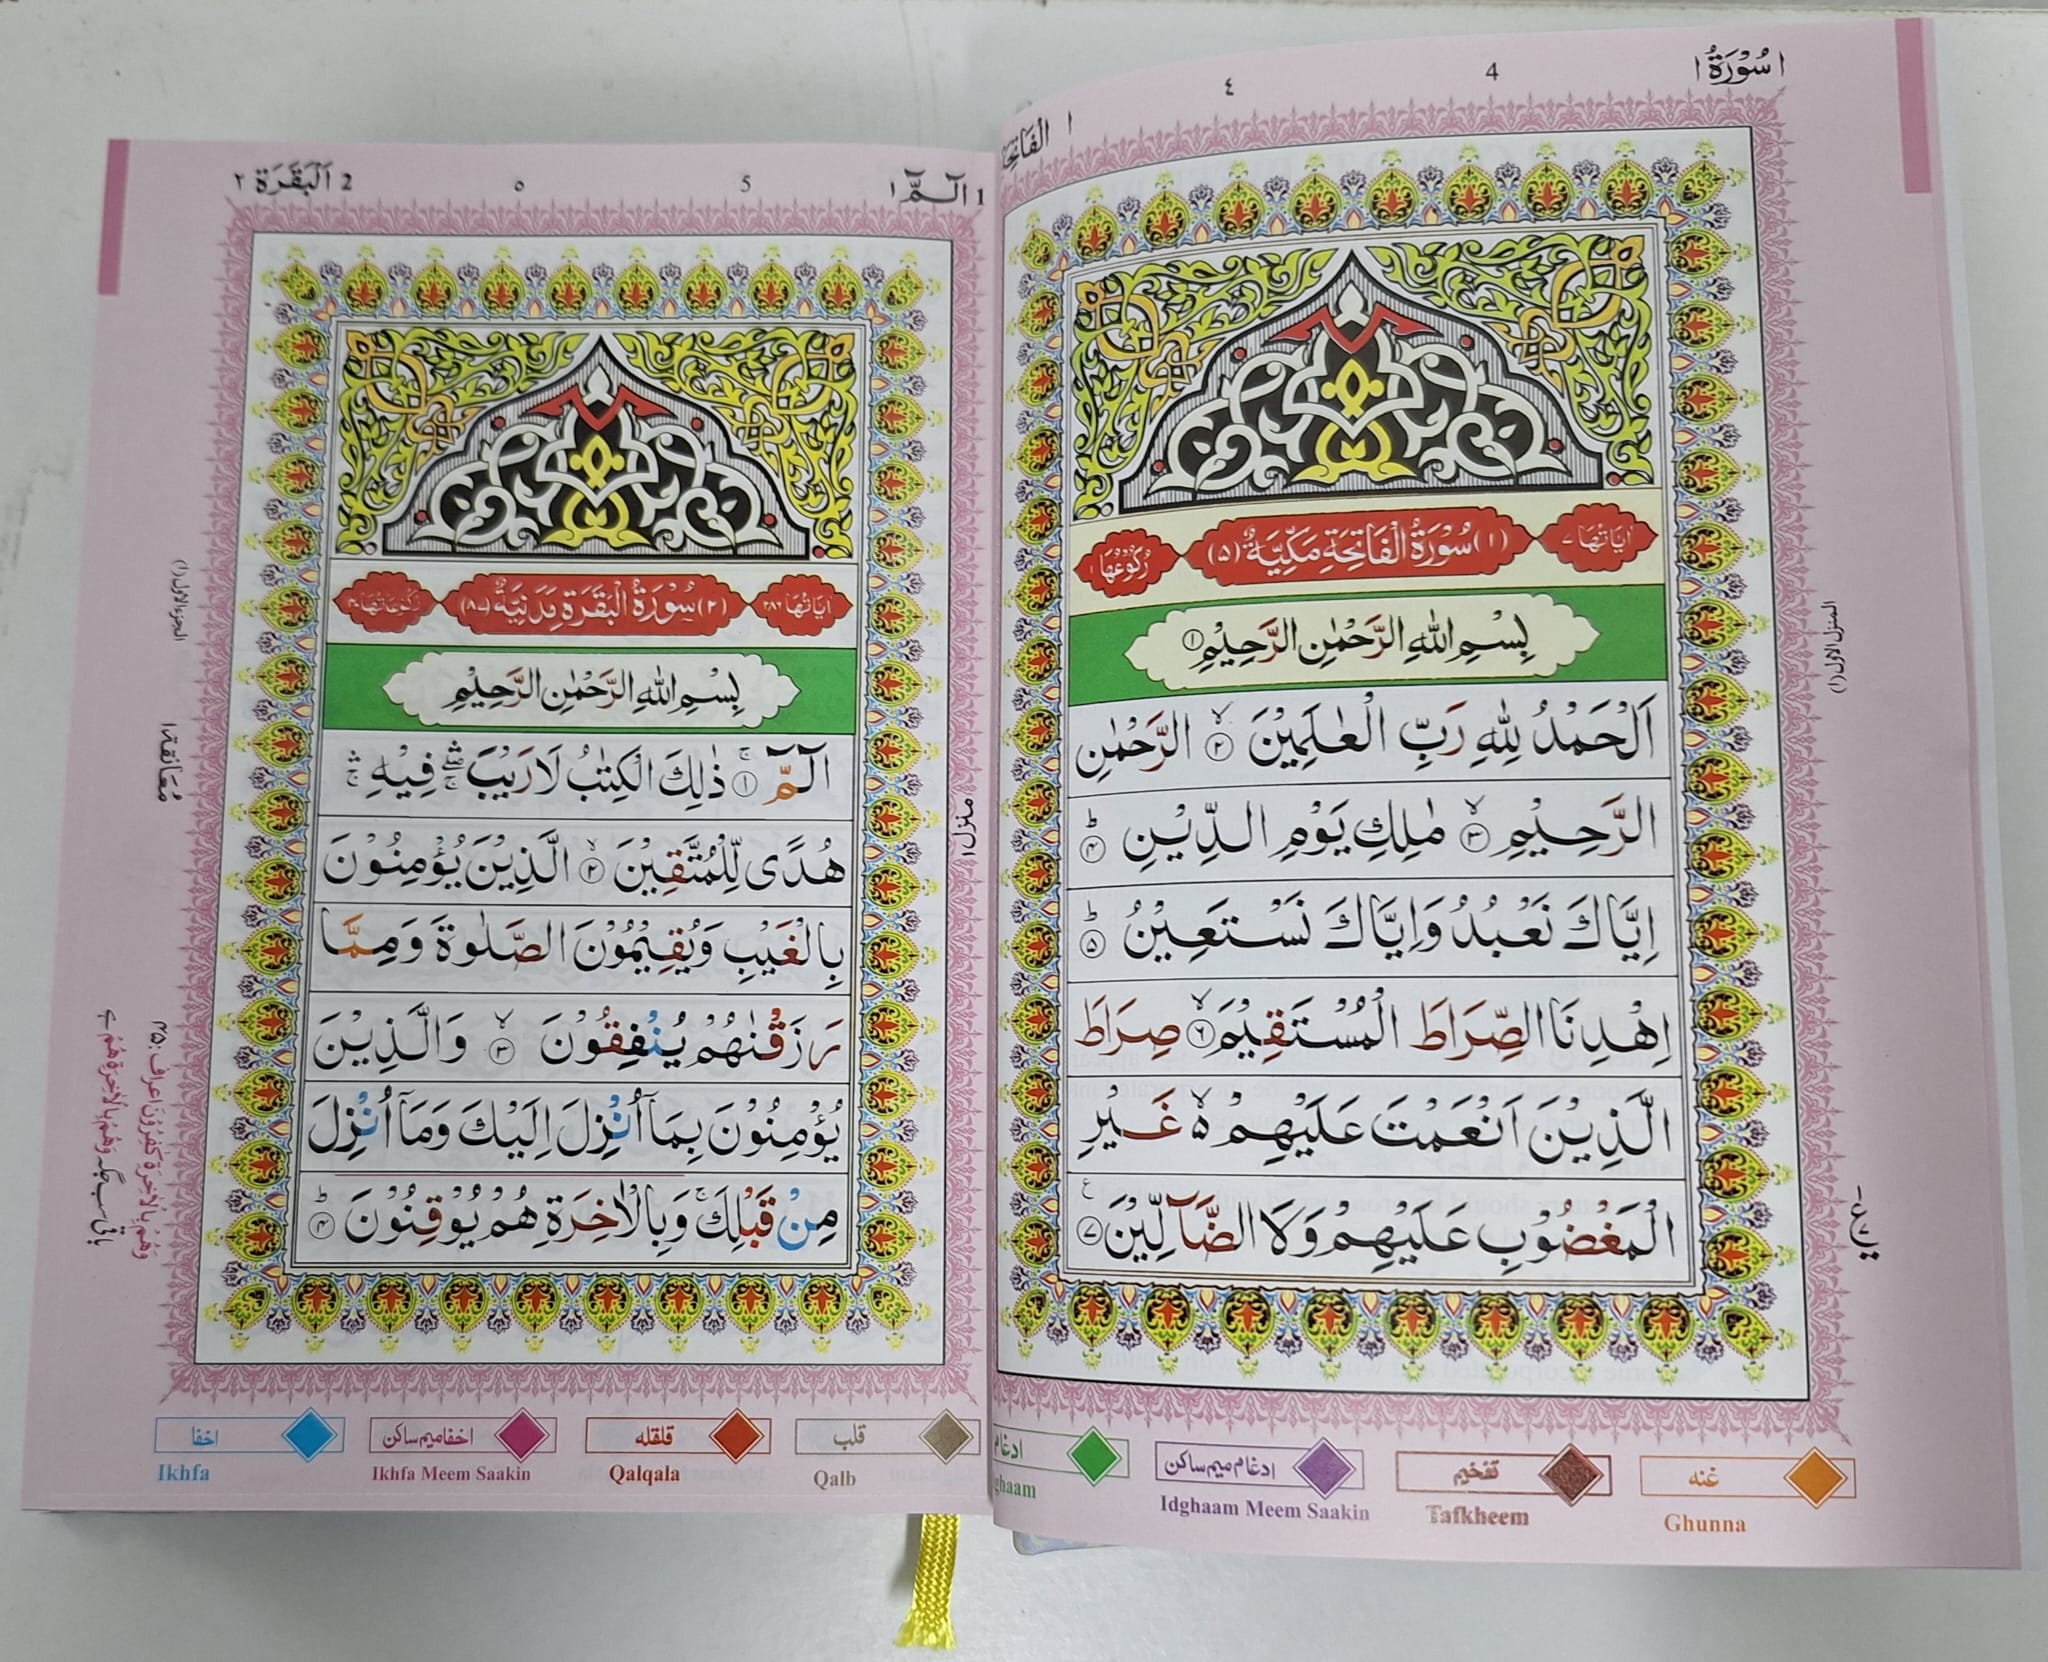 سُوْرَةُ ١
4
٤
الْفَاتِحَة ١
اٰيَاتُهَا ٧
(١) سُوْرَةُ الْفَاتِحَةِ مَكِّيَّةٌ (٥)
رُكُوْعُهَا ١
بِسْمِ اللهِ الرَّحْمٰنِ الرَّحِيْمِ ۝١
اَلْحَمْدُ لِلّٰهِ رَبِّ الْعٰلَمِيْنَ ۙ۝٢ الرَّحْمٰنِ
الرَّحِيْمِ ۙ۝٣ مٰلِكِ يَوْمِ الدِّيْنِ ؕ۝٤
اِيَّاكَ نَعْبُدُ وَاِيَّاكَ نَسْتَعِيْنُ ؕ۝٥
اِهْدِنَا الصِّرَاطَ الْمُسْتَقِيْمَ ۙ۝٦ صِرَاطَ
الَّذِيْنَ اَنْعَمْتَ عَلَيْهِمْ ۙ۵ غَيْرِ
الْمَغْضُوْبِ عَلَيْهِمْ وَلَا الضَّآلِّيْنَ ۝٧
المنزل الاول (١)
غنه
Ghunna
تفخیم
Tafkheem
ادغام میم ساکن
Idghaam Meem Saakin
ادغام
ghaam
1 الٓـمّٓ ١
5
٥
2 اَلْبَقَرَة ٢
اٰيَاتُهَا ٢٨٦
(٢) سُوْرَةُ الْبَقَرَةِ مَدَنِيَّةٌ (٨٧)
رُكُوْعَاتُهَا ٤٠
بِسْمِ اللهِ الرَّحْمٰنِ الرَّحِيْمِ
الٓـمّٓ ۚ۝١ ذٰلِكَ الْكِتٰبُ لَا رَيْبَ ۛۖۚ فِيْهِ ۛۚ
هُدًى لِّلْمُتَّقِيْنَ ۙ۝٢ الَّذِيْنَ يُؤْمِنُوْنَ
بِالْغَيْبِ وَيُقِيْمُوْنَ الصَّلٰوةَ وَمِمَّا
رَزَقْنٰهُمْ يُنْفِقُوْنَ ۙ۝٣ وَالَّذِيْنَ
يُؤْمِنُوْنَ بِمَآ اُنْزِلَ اِلَيْكَ وَمَآ اُنْزِلَ
مِنْ قَبْلِكَ ۚ وَبِالْاٰخِرَةِ هُمْ يُوْقِنُوْنَ ؕ۝٤
منزل ١
الجزء الاول (١)
مُعَانَقَة ١
وَهُمْ بِالْاٰخِرَةِ كٰفِرُوْنَ اعراف: ٤٥
باقی سب جگہ وَهُمْ بِالْاٰخِرَةِ هُمْ ہے
قلب
Qalb
قلقله
Qalqala
اخفا میم ساکن
Ikhfa Meem Saakin
اخفا
Ikhfa